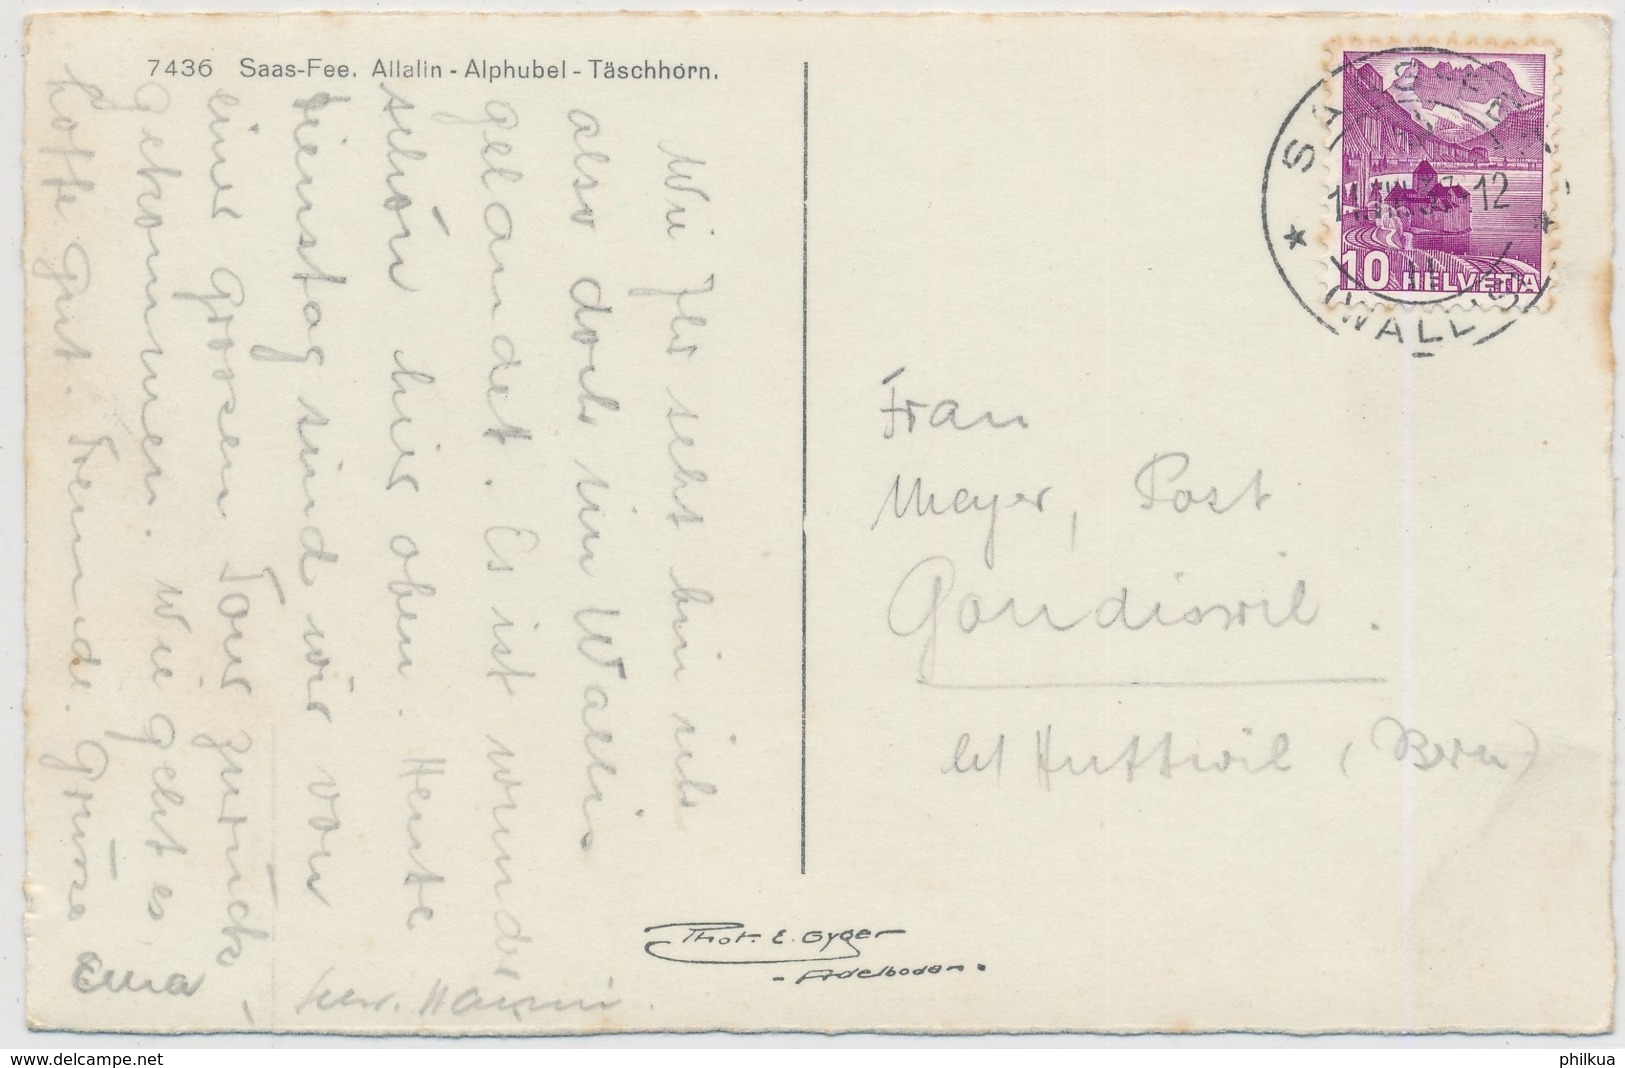 7436 Saas-Fee. Allalin - Alphubel - Täschhorn.
Wie Ihr seht bin ich
also doch im Wallis
gelandet. Es ist wunder
schön hier oben. Heute
Dienstag sind wir von
einer grossen Tour zurück
gekommen. Wie geht es,
hoffe gut. Freundl. Grüsse
Phot. E. Gyger
- Adelboden.
SAAS
12
(WALLIS)
10 HELVETIA
Frau
Meyer, Post
Gondiswil.
bei Huttwil (Bern)
www.delcampe.net
philkua